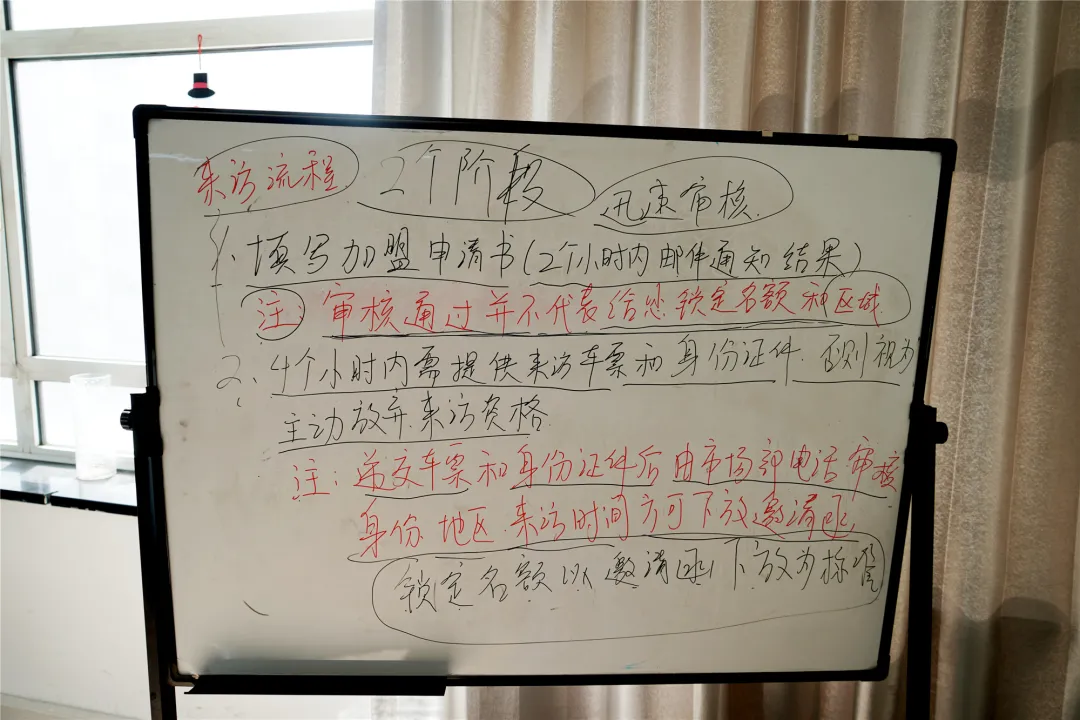 来访流程 2个阶段 迅速审核
1、填写加盟申请书(2个小时内邮件通知结果)
注: 审核通过并不代表给您锁定名额和区域
2、4个小时内需提供来访车票和身份证件.否则视为
主动放弃来访资格
注:递交车票和身份证件后由市场部电话审核
身份.地区.来访时间方可下放邀请函,
锁定名额以邀请函下放为标准